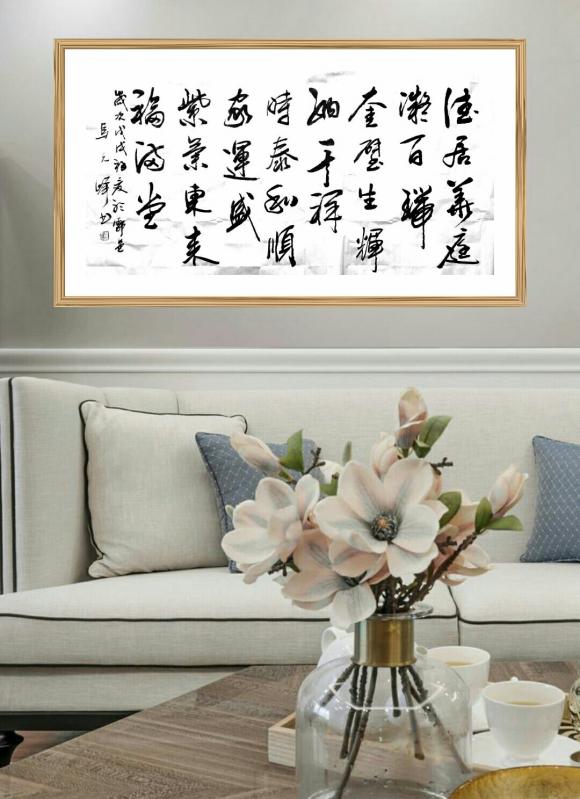 佳居華庭
凝百瑞
奎壁生輝
納千祥
時泰和順
家運盛
紫氣東來
福滿堂
歲次戊戌初夏於
馬元輝書